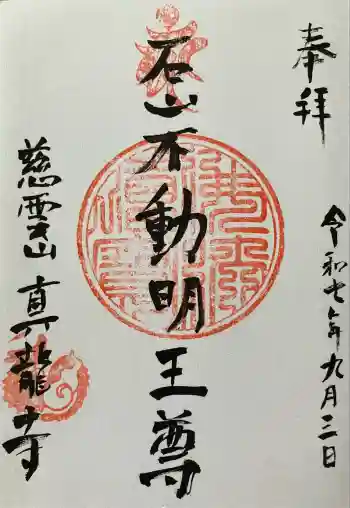 奉拝
令和七年九月三日
石山不動明王尊
慈雲山 真龍寺